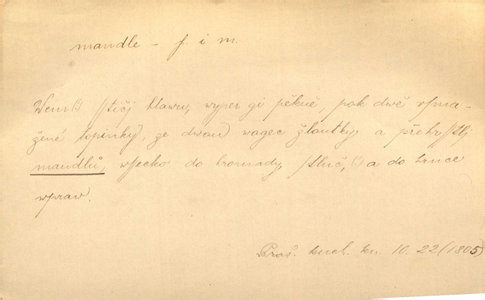 mandle – f. i m.
Wemß štičj hlawu, wyper gi pěkně, pak dwě vsma-
žené topinky, ze dwau wagec žlautky a přehrsslj
mandlů, wssecko do hromady stluč, a do hrnce
wpraw.
Praž. kuch. kn. 10. 22 (1805)